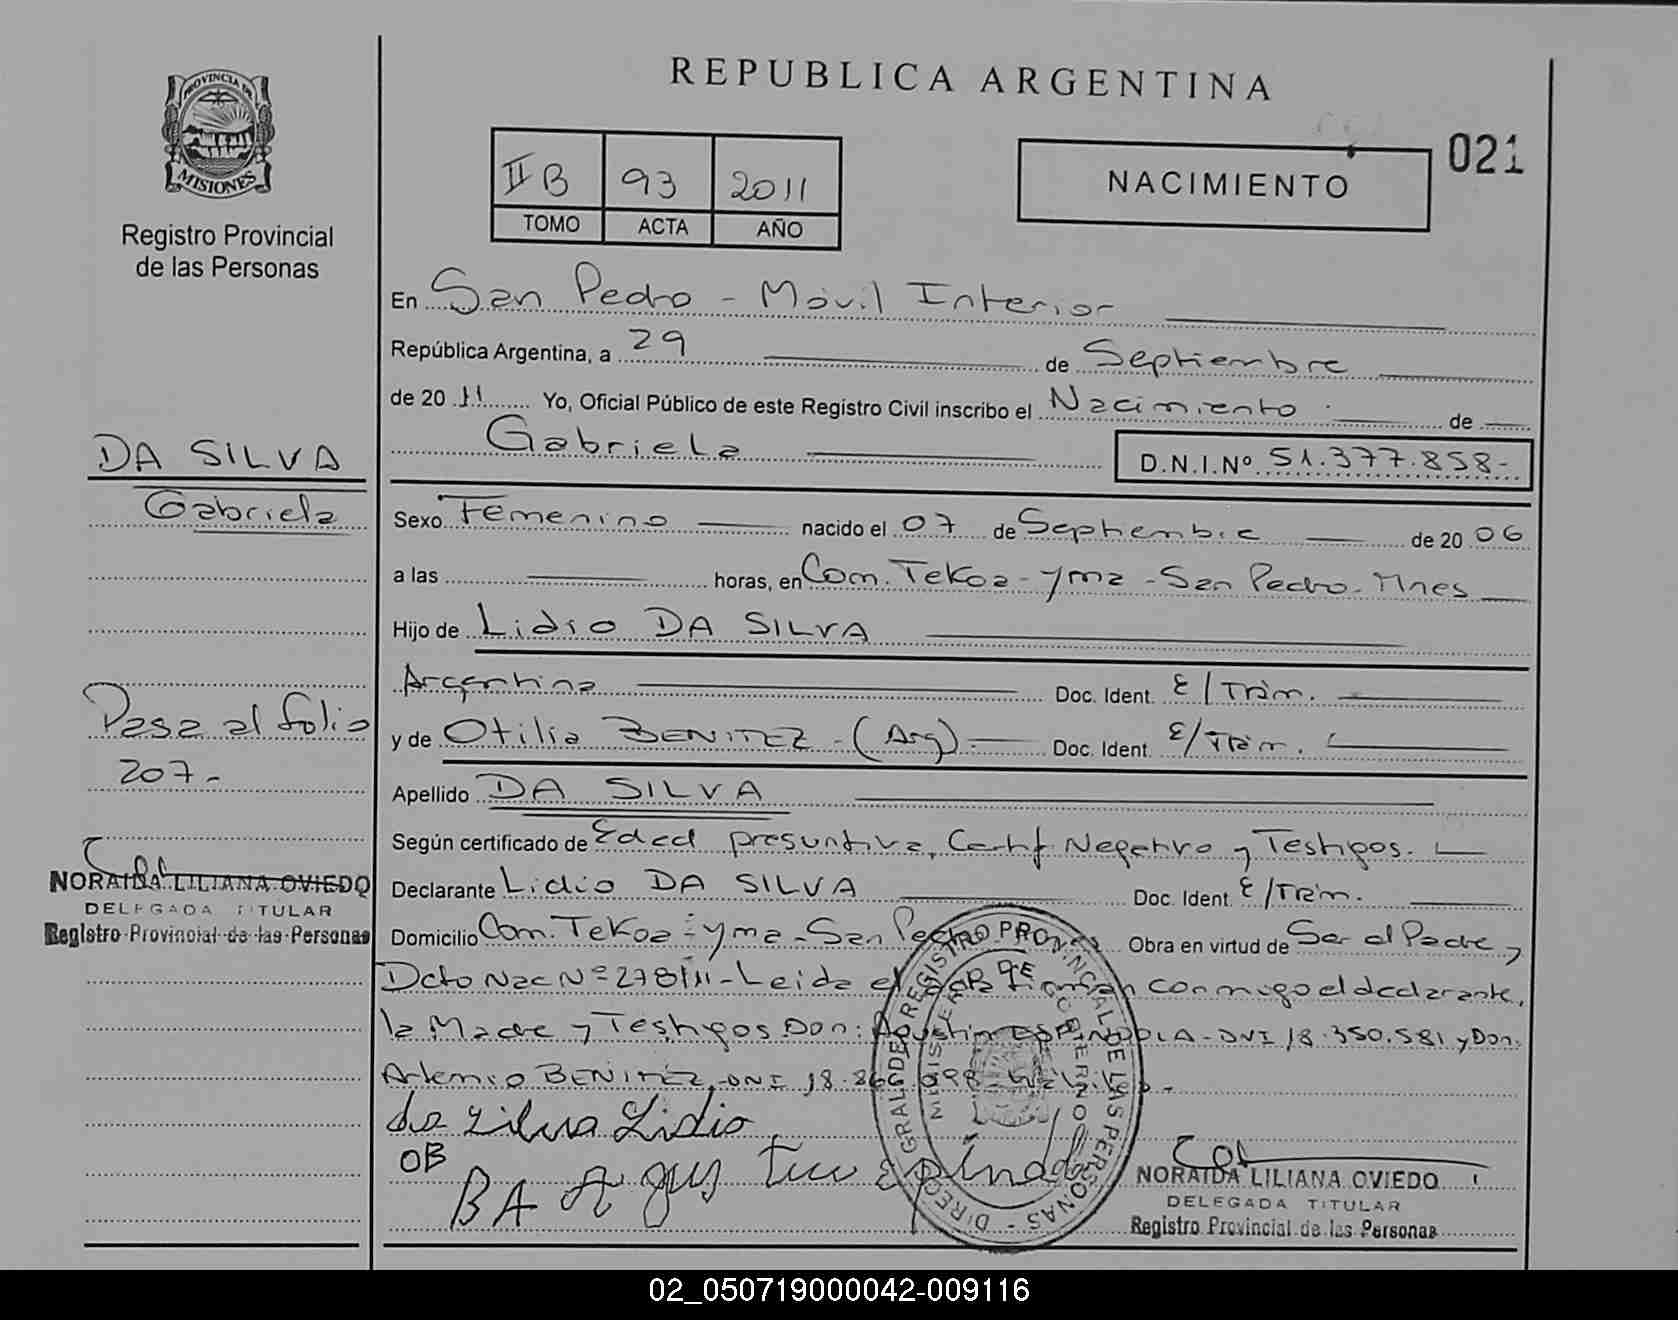 REPUBLICA ARGENTINA
PROVINCIA DE
MISIONES
Registro Provincial
de las Personas
II B 93 2011
TOMO ACTA AÑO
NACIMIENTO
021
En San Pedro - Móvil Interior
República Argentina, a 29 de Septiembre
de 20 11 Yo, Oficial Público de este Registro Civil inscribo el Nacimiento de
Gabriela
D.N.I.Nº 51.377.858-
DA SILVA
Gabriela
Sexo Femenino nacido el 07 de Septiembre de 20 06
a las horas, en Com. TeKoa-yma-San Pedro-Mnes
Hijo de Lidio DA SILVA
Argentina Doc. Ident. E/Trám.
y de Otilia BENITEZ-(Arg) Doc. Ident. E/Trám.
Pasa al folio
207-
Apellido DA SILVA
Según certificado de Edad presuntiva, Certif Negativo y Testigos.
Declarante Lidio DA SILVA Doc. Ident. E/Trám.
Domicilio Com. TeKoa-yma-San Pedro Obra en virtud de Ser el Padre y
Dcto Nac Nº 278/11-Leida el acta firman conmigo el declarante,
la Madre y Testigos Don: Agustin ESPINDOLA-DNI 18.350.581 y Don:
Artemio BENITEZ-DNI 18.266.098-
da silva Lidio
OB
BA Agustin Espindola
NORAIDA LILIANA OVIEDO
DELEGADA TITULAR
Registro Provincial de las Personas
NORAIDA LILIANA OVIEDO
DELEGADA TITULAR
Registro Provincial de las Personas
DIREC. GRAL. DEL REGISTRO PROVINCIAL DE LAS PERSONAS
02_050719000042-009116